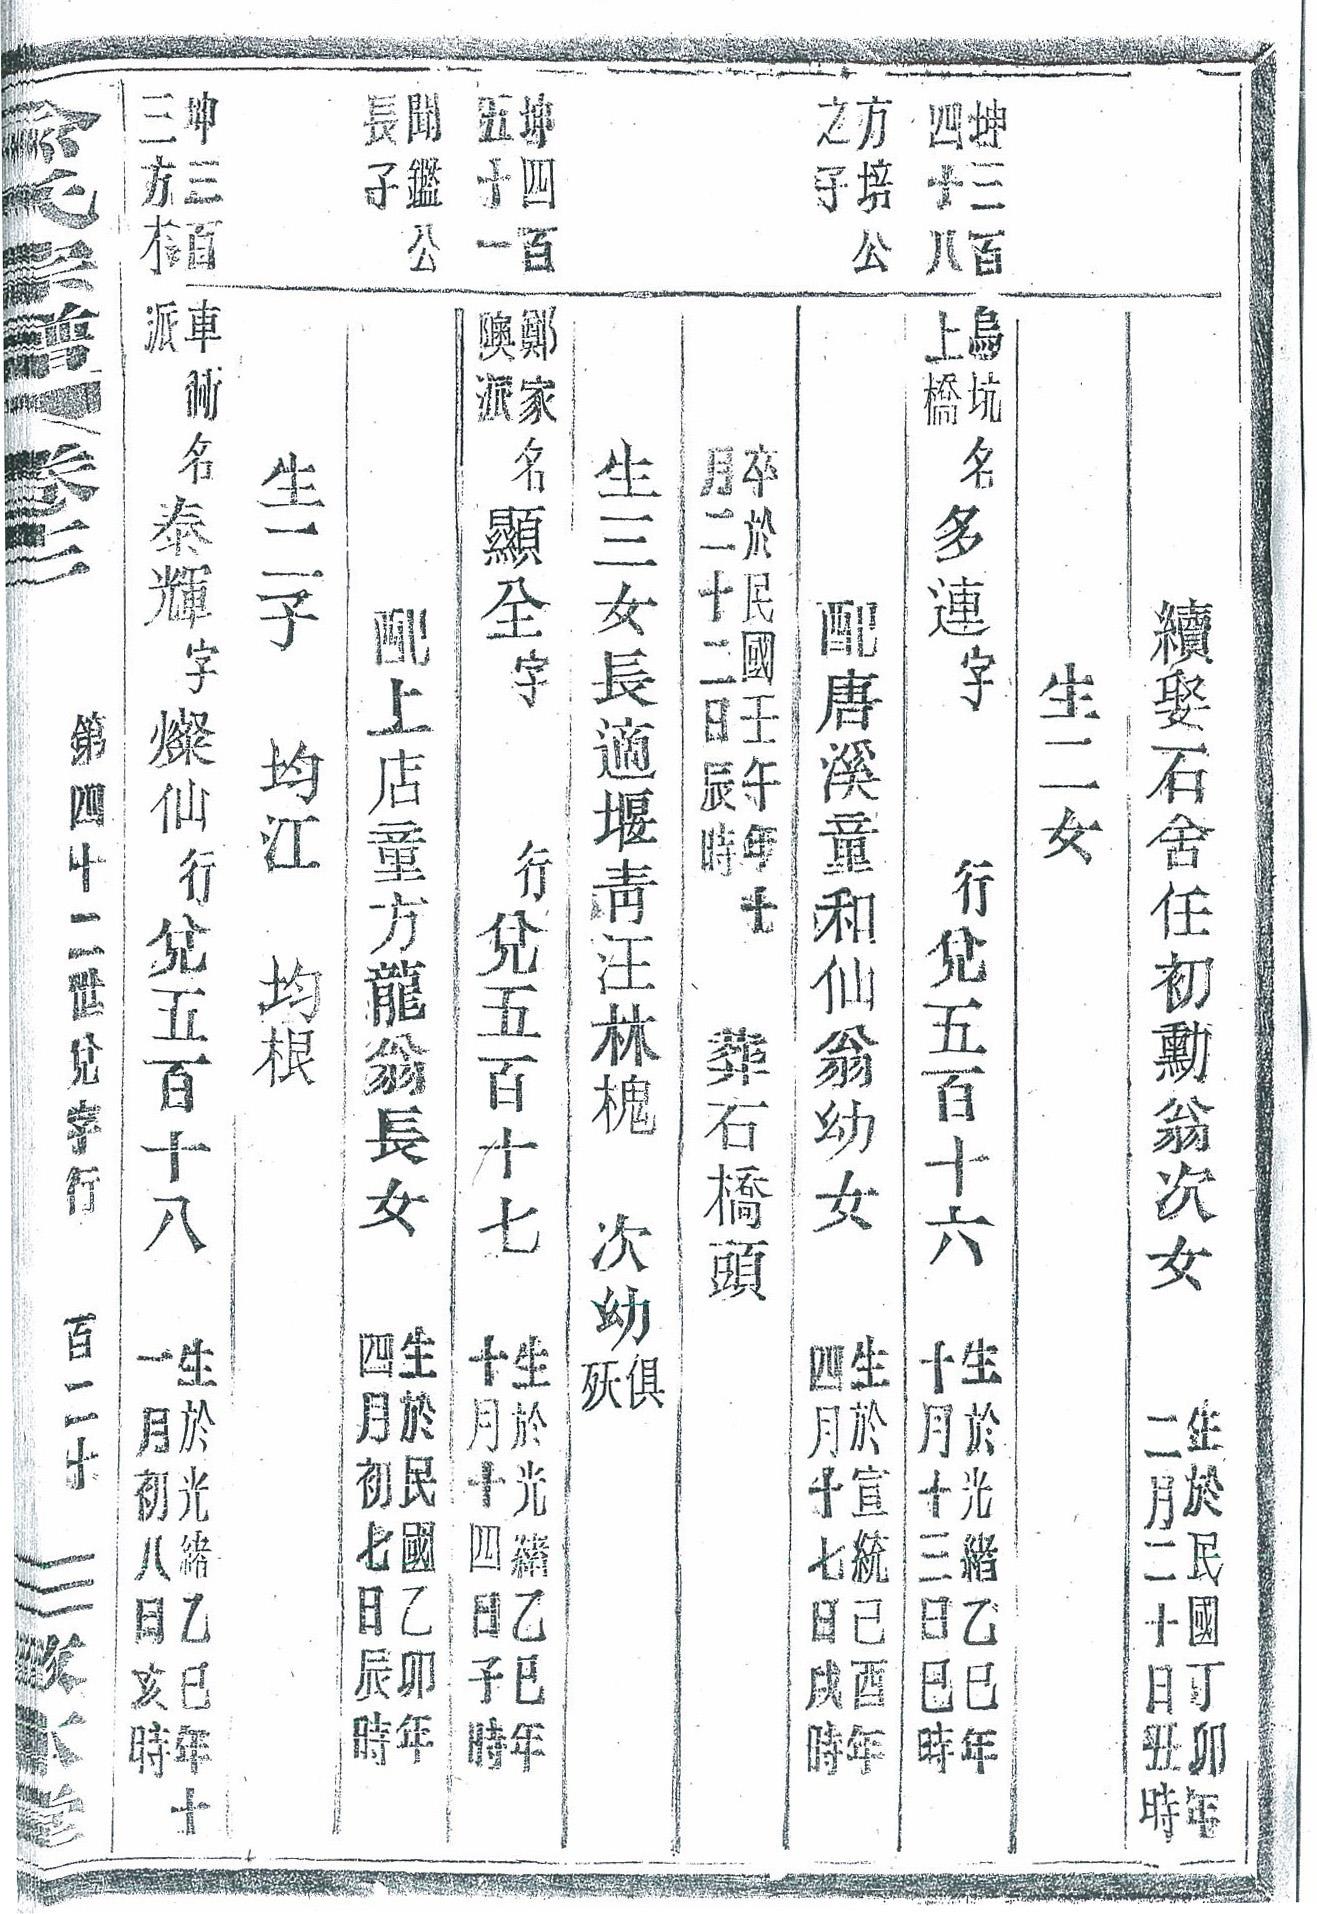 續娶石舍任初勳翁次女 生於民國丁卯年二月二十日丑時
生二女
坤三百四十八 烏坑上橋 名多連字 行兌五百十六 生於光緒乙巳年十月十三日巳時
方培公之子 配唐溪童和仙翁幼女 生於宣統己酉年四月十七日戌時
卒於民國壬午年十月二十二日辰時 葬石橋頭
生三女長適堰青汪林槐 次幼俱殀
坤四百五十一 鄭家隩派 名顯全字 行兌五百十七 生於光緒乙巳年十月十四日子時
聞鑑公長子 配上店童方龍翁長女 生於民國乙卯年四月初七日辰時
生二子 均江 均根
坤三百三方木 車衕派 名泰輝字燦仙行兌五百十八 生於光緒乙巳年十一月初八日亥時
氏宗譜 卷二 第四十二世兌字行 百二十 敘本堂